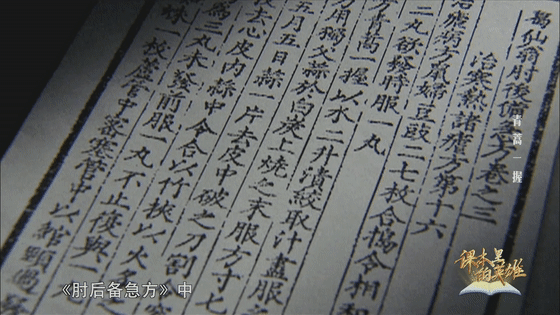 葛仙翁肘後備急方卷之三
治寒熱諸瘧方第十六
治瘧病方鼠婦豆豉二七枚合搗令相和
二丸欲發時服一丸
方青蒿一握以水二升漬絞取汁盡服
方用獨父蒜於白炭上燒之末服方寸匕
五月五日蒜一片去皮中破之刀割
去心皮內蒜中令合以竹挾以火炙
爲三丸未發前服一丸不止復與一丸
蛛一枚蘆管中密塞管中以綰頸過
青蒿一握
课本里的英雄
《肘后备急方》中